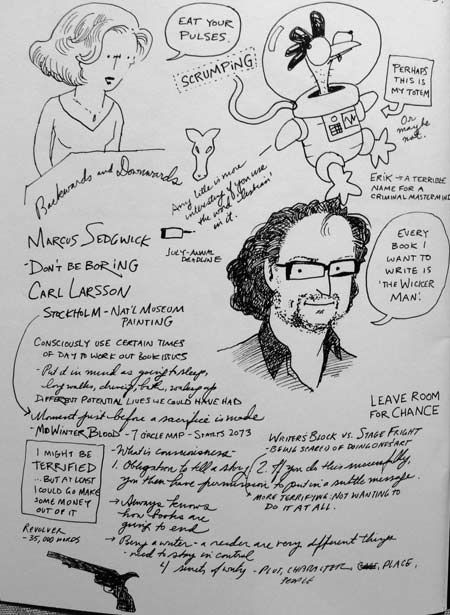 EAT YOUR
PULSES.
SCRUMPING
PERHAPS
THIS IS
MY TOTEM
Or
maybe
not.
ERIK → A TERRIBLE
NAME FOR A
CRIMINAL MASTERMIND
Backwards and Downwards
Any title is more
interesting if you use
the word 'lesbian'
in it.
MARCUS SEDGWICK
JULY-ANNUAL
DEADLINE
- DON'T BE BORING
CARL LARSSON
STOCKHOLM - NAT'L MUSEUM
PAINTING
EVERY
BOOK I
WANT TO
WRITE IS
'THE WICKER
MAN'.
CONSCIOUSLY USE CERTAIN TIMES
OF DAY TO WORK OUT BOOK ISSUES
- Put it in mind as going to sleep,
long walks, driving, bath, waking up
DIFFERENT POTENTIAL LIVES WE COULD HAVE HAD
Moment just before a sacrifice is made
- MIDWINTER BLOOD - 7 CIRCLE MAP - STARTS 2073
LEAVE ROOM
FOR CHANCE
WRITER'S BLOCK VS. STAGE FRIGHT
- BEING SCARED OF DOING ONE'S ART
I MIGHT BE
TERRIFIED
...BUT AT LEAST
I COULD GO MAKE
SOME MONEY
OUT OF IT
- What is consciousness
1. Obligation to tell a story
2. If you do this successfully,
you then have permission to put in a subtle message.
* MORE TERRIFYING: NOT WANTING TO
DO IT AT ALL.
→ Always knows
how books are
going to end
→ Being a writer - a reader are very different things
- need to stay in control
4 units of writing - PLOT, CHARACTER, PLACE,
PEOPLE
REVOLVER
- 35,000 WORDS